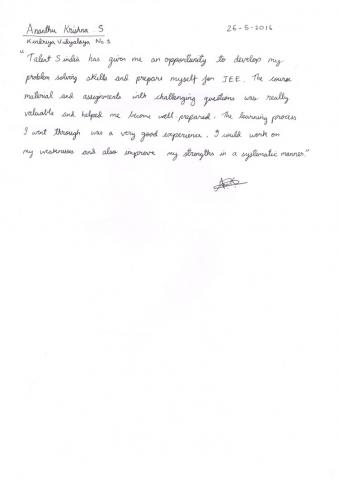 Ananthu Krishna. S
26-5-2016
Kendriya Vidyalaya No.1
"Talent S india has given me an opportunity to develop my
problem solving skills and prepare myself for JEE. The course
material and assignments with challenging questions was really
valuable and helped me become well-prepared. The learning process
I went through was a very good experience. I could work on
my weaknesses and also improve my strengths in a systematic manner."